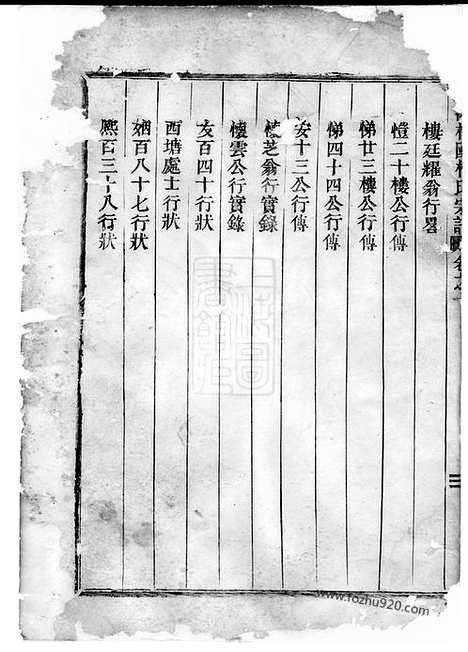 樓廷耀翁行畧
愷二十樓公行傳
悌廿三樓公行傳
悌四十四公行傳
安十三公行傳
芝翁行實錄
懷雲公行實錄
友百四十行狀
西塘處士行狀
姻百八十七行狀
熈百三十八行狀
氏宗譜
三
www.fozhu920.com